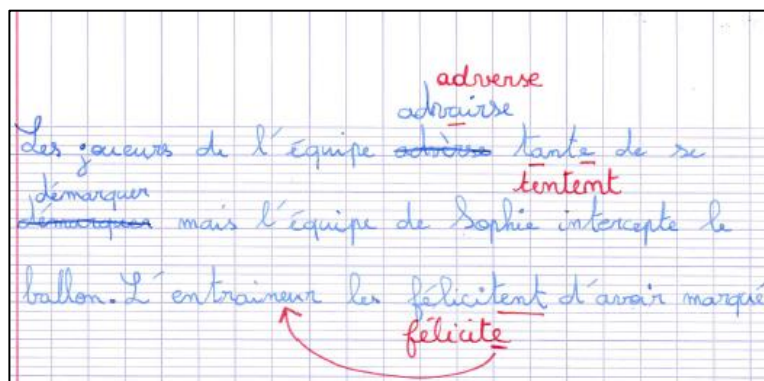 adverse
advairse
Les joueurs de l'équipe advèrse tante de se
tentent
démarquer
mais l'équipe de Sophie intercepte le
ballon. L'entraineur les félicitent d'avoir marqué
félicite